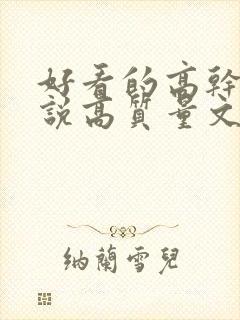 好看的高幹
說高質量文
納蘭雪兒